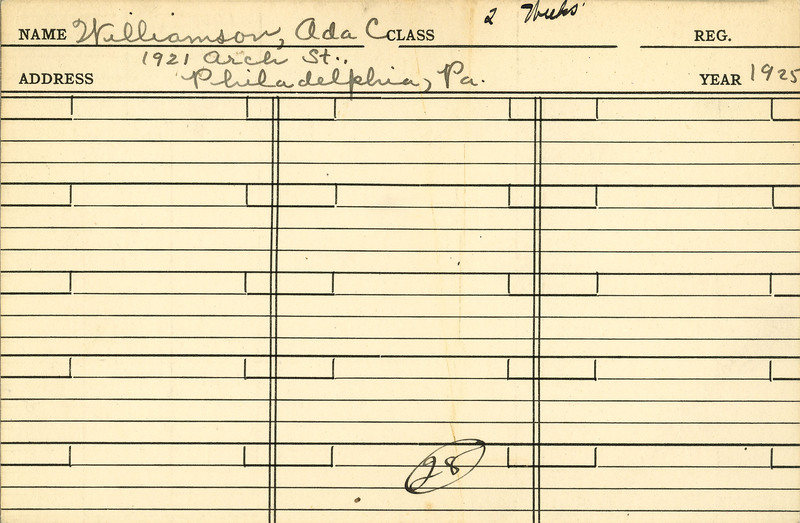 NAME Williamson, Ada C CLASS 2 Weeks REG.
1921 Arch St.,
ADDRESS Philadelphia, Pa. YEAR 1925
28